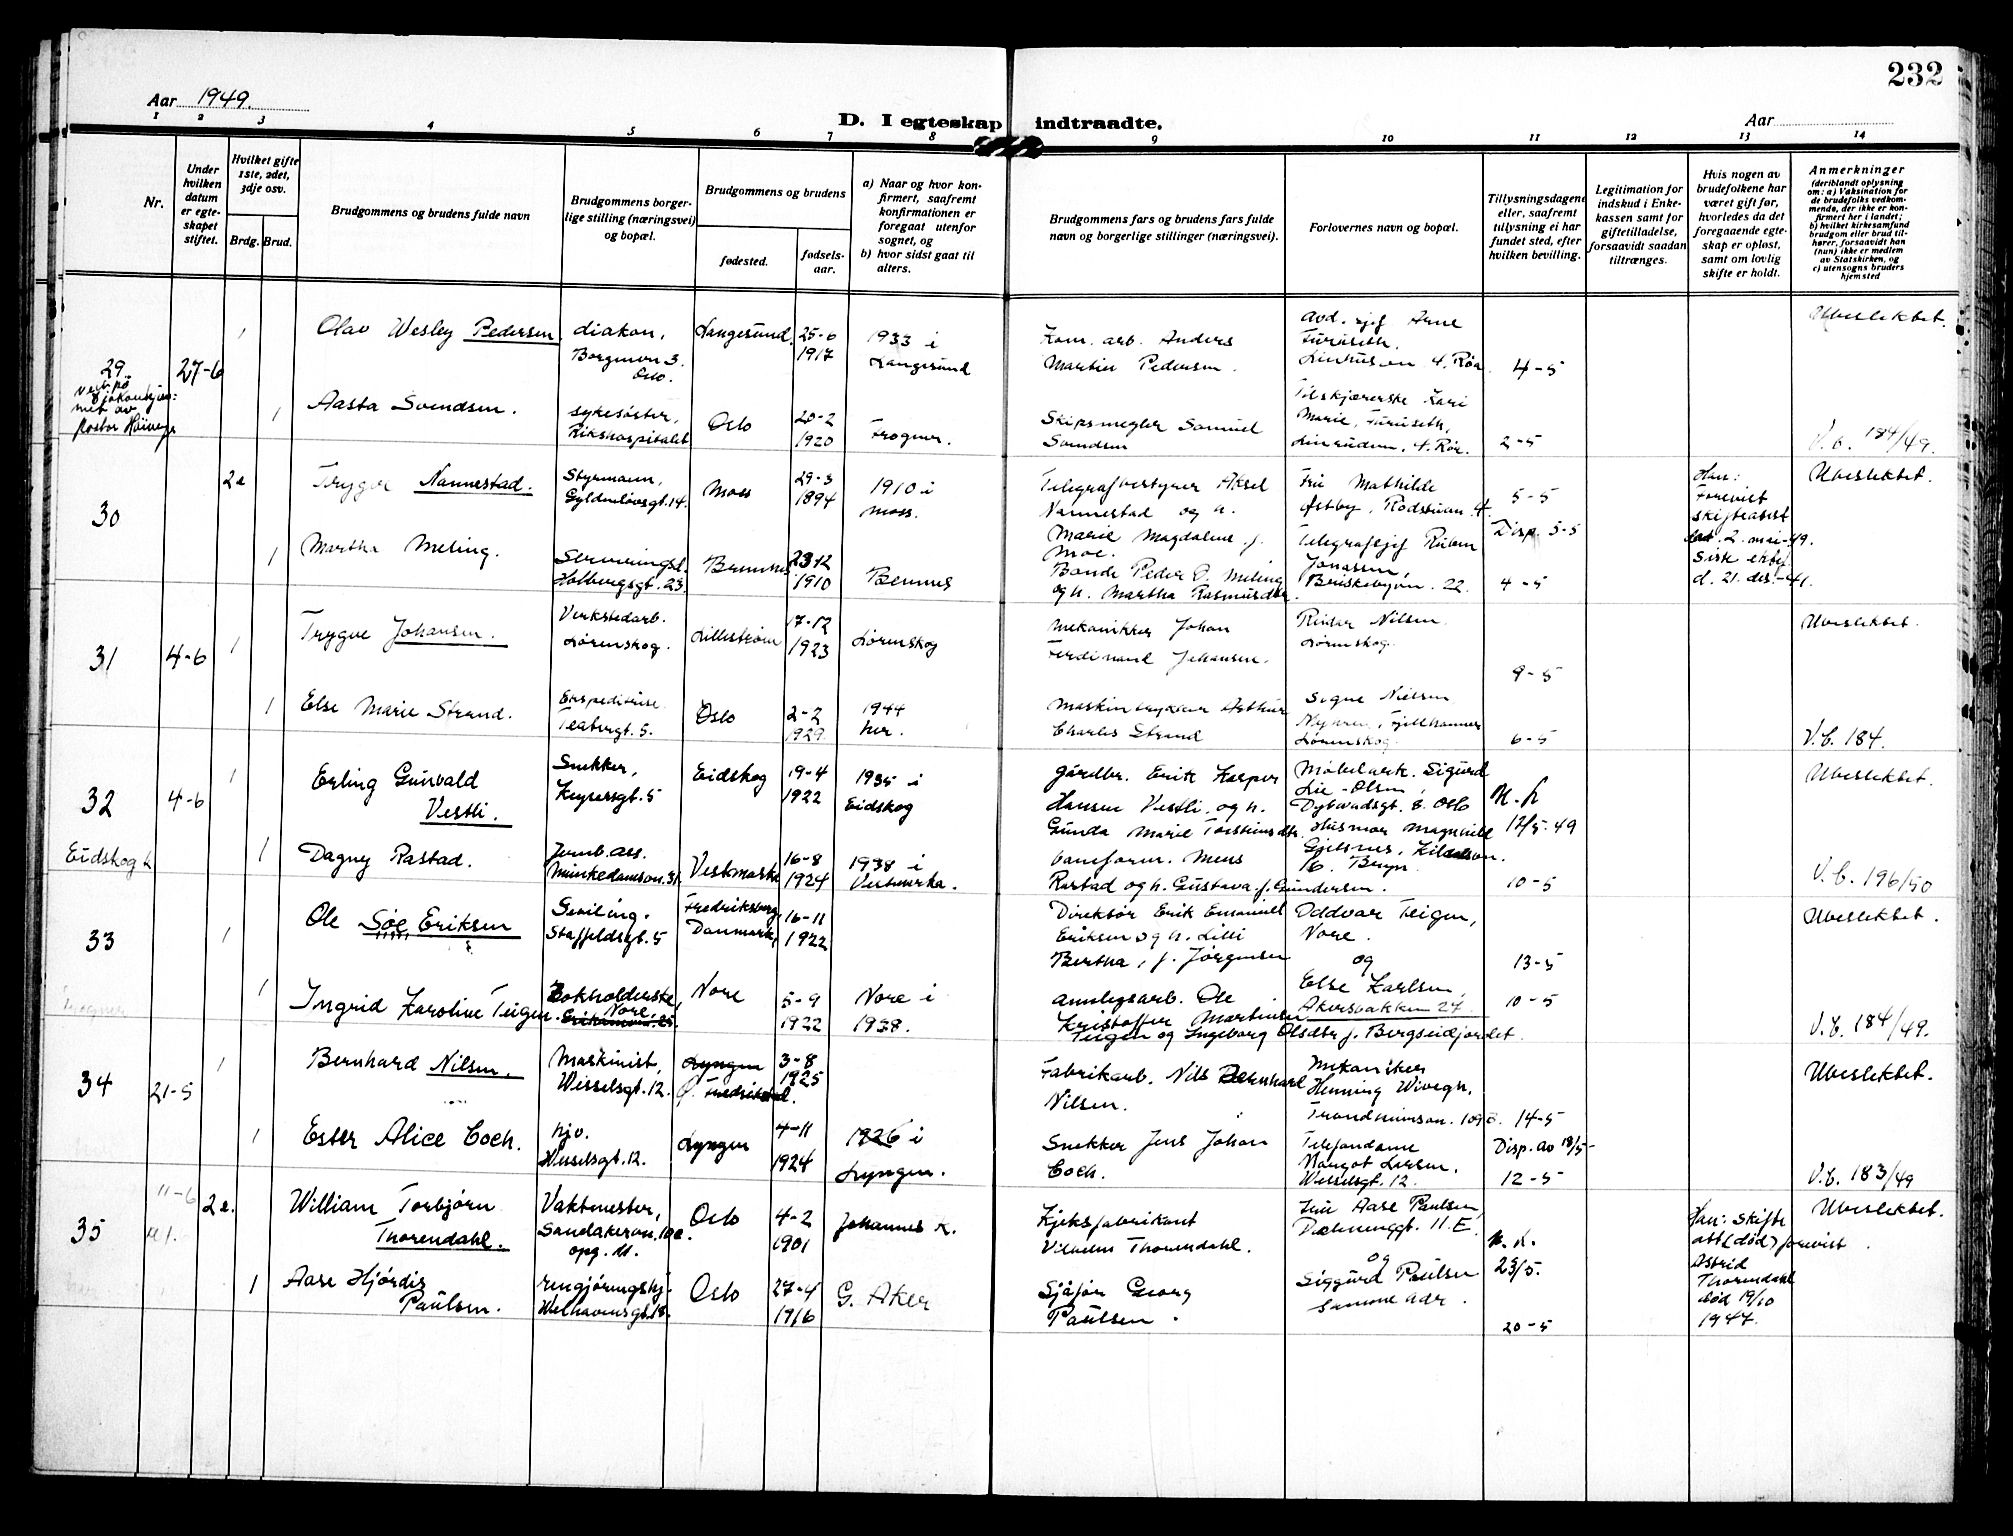 232
Aar 1949.
D. I egteskap indtraadte.
Aar
1 2 3 4 5 6 7 8 9 10 11 12 13 14
Nr.
Under hvilken datum er egteskapet stiftet.
Hvilket gifte 1ste, 2det, 3dje osv.
Brdg. Brud.
Brudgommens og brudens fulde navn
Brudgommens borgerlige stilling (næringsvei) og bopæl.
Brudgommens og brudens
fødested.
fødselsaar.
a) Naar og hvor konfirmert, saafremt konfirmationen er foregaat utenfor sognet, og
b) hvor sidst gaat til alters.
Brudgommens fars og brudens fars fulde navn og borgerlige stillinger (næringsvei).
Forlovernes navn og bopæl.
Tillysningsdagene eller, saafremt tillysning ei har fundet sted, efter hvilken bevilling.
Legitimation for indskud i Enkekassen samt for giftetilladelse, forsaavidt saadan tiltrænges.
Hvis nogen av brudefolkene har været gift før, hvorledes da det foregaaende egteskap er opløst, samt om lovlig skifte er holdt.
Anmerkninger
(deriblandt oplysning om: a) Vaksination for de brudefolks vedkommende, der ikke er konfirmert her i landet; b) hvilket kirkesamfund brudgom eller brud tilhører, forsaavidt han (hun) ikke er medlem av Statskirken, og c) utensogns bruders hjemsted
29. 27-6
1 Olav Wesley Pedersen diakon, Borgenvn 3. Oslo. Langesund 25-6 1917 1933 i Langesund
Kom. arb. Anders Martin Pedersen. Avd. sjef Arne Furuseth, 4. Røa 4-5 Ubeslektet.
1 Aasta Svendsen. sykesøster, Rikshospitalet Oslo 20-2 1920 Frogner.
Skipsmegler Samuel Svendsen Tilskjærerske Kari Marie Furuseth, 2-5 V.b. 184/49.
30
2e Trygve Nannestad. Styrmann, Gyldenløvsgt. 14. Moss 29-3 1894 1910 i Moss.
Telegrafbestyrer Aksel Nannestad og h. Marie Magdalene f. Moe. Fru Mathilde Østby, 5-5 Disp. 5-5
Han: Forevist skifteattest dat. 2. mai-49. d. 21. des.-41. Ubeslektet.
1 Martha Meling. Holbergsgt. 23. 23-12 1910
Bonde Peder O. Meling og h. Martha Rasmusdtr. Telegrafsjef Jonassen, Briskebyvn. 22. 4-5
31 4-6
1 Trygve Johansen. Verkstedarb. Lørenskog. Lillestrøm 17-12 1923 Lørenskog
Mekanikker Johan Ferdinand Johansen. Nilsen Lørenskog. 9-5 Ubeslektet.
1 Else Marie Strand. Ekspeditrise Oslo 2-2 1929 1944 her.
Maskintrykker Arthur Charles Strand Signe Nielsen Fjellhamar Lørenskog. 6-5 V.b. 184.
32 4-6
Eidskog
1 Erling Gunvald Vestli. Snekker, Keysersgt. 5 Eidskog 19-4 1922 1935 i Eidskog
Gårdbr. Erik Kasper Hansen Vestli og h. Gunda Marie Torstensdtr. Møbelark. Sigurd Lie-Olsen, Dybwadsgt. 8. Oslo 12/5-49 Ubeslektet.
1 Dagny Rastad. Jernb. ass. Munkedamsvn. 31. Vestmarka 16-8 1924 1938 i Vestmarka.
Baneform. Mens Rastad og h. Gustava f. Gundersen. Husmor Magnhild Gjelsnes, 10-5 V.b. 196/50
33
1 Ole Søe Eriksen Seviling. Staffeldsgt. 5 Fredriksberg, Danmark, 16-11 1922
Direktør Erik Emanuel Eriksen og h. Lilli Bertha, f. Jørgensen Oddvar Teigen, Nore. og 13-5 Ubeslektet.
1 Ingrid Karoline Teigen. Bokholderske, Nore, Nore 5-9 1922 Nore i 1938.
Anleggsarb. Ole Kristoffer Martinsen Teigen og Ingeborg Olsdtr f. Bergseidjordet. Else Karlsen, Akersbakken 24 10-5 V.b. 184/49.
34 21-5
1 Bernhard Nilsen. Maskinist, Wesselsgt. 12. Lyngen Ø. Fredrikstad. 3-8 1925
Fabrikarb. Nils Bernhard Nilsen. Mekaniker Henning Wivegh, 14-5 Ubeslektet.
1 Ester Alice Coch. hjv. Wesselsgt. 12. Lyngen 4-11 1924 1926 i Lyngen.
Snekker Jens Johan Coch. Telefondame Margot Larsen, Wesselsgt. 12. Disp. av 18/5- 12-5 V.b. 183/49
35 11-6
2e. William Torbjørn Thorendahl. Vaktmester, Sandakervn. 10c. opg. M. Oslo 4-2 1901 Johannes K.
Kjeksfabrikant Vilhelm Thorendahl. Fru Aase Paulsen, 11.E. og 23/5. Han: Skifteatt (død) forevist. Astrid Thorendahl død 19/10 1947. Ubeslektet.
1 Aase Hjørdis Paulsen. rengjøringshj. Welhavensgt. 18. Oslo 27-4 1916 G. Aker
Sjåfør Georg Paulsen. Siggurd Paulsen samme adr. 20-5